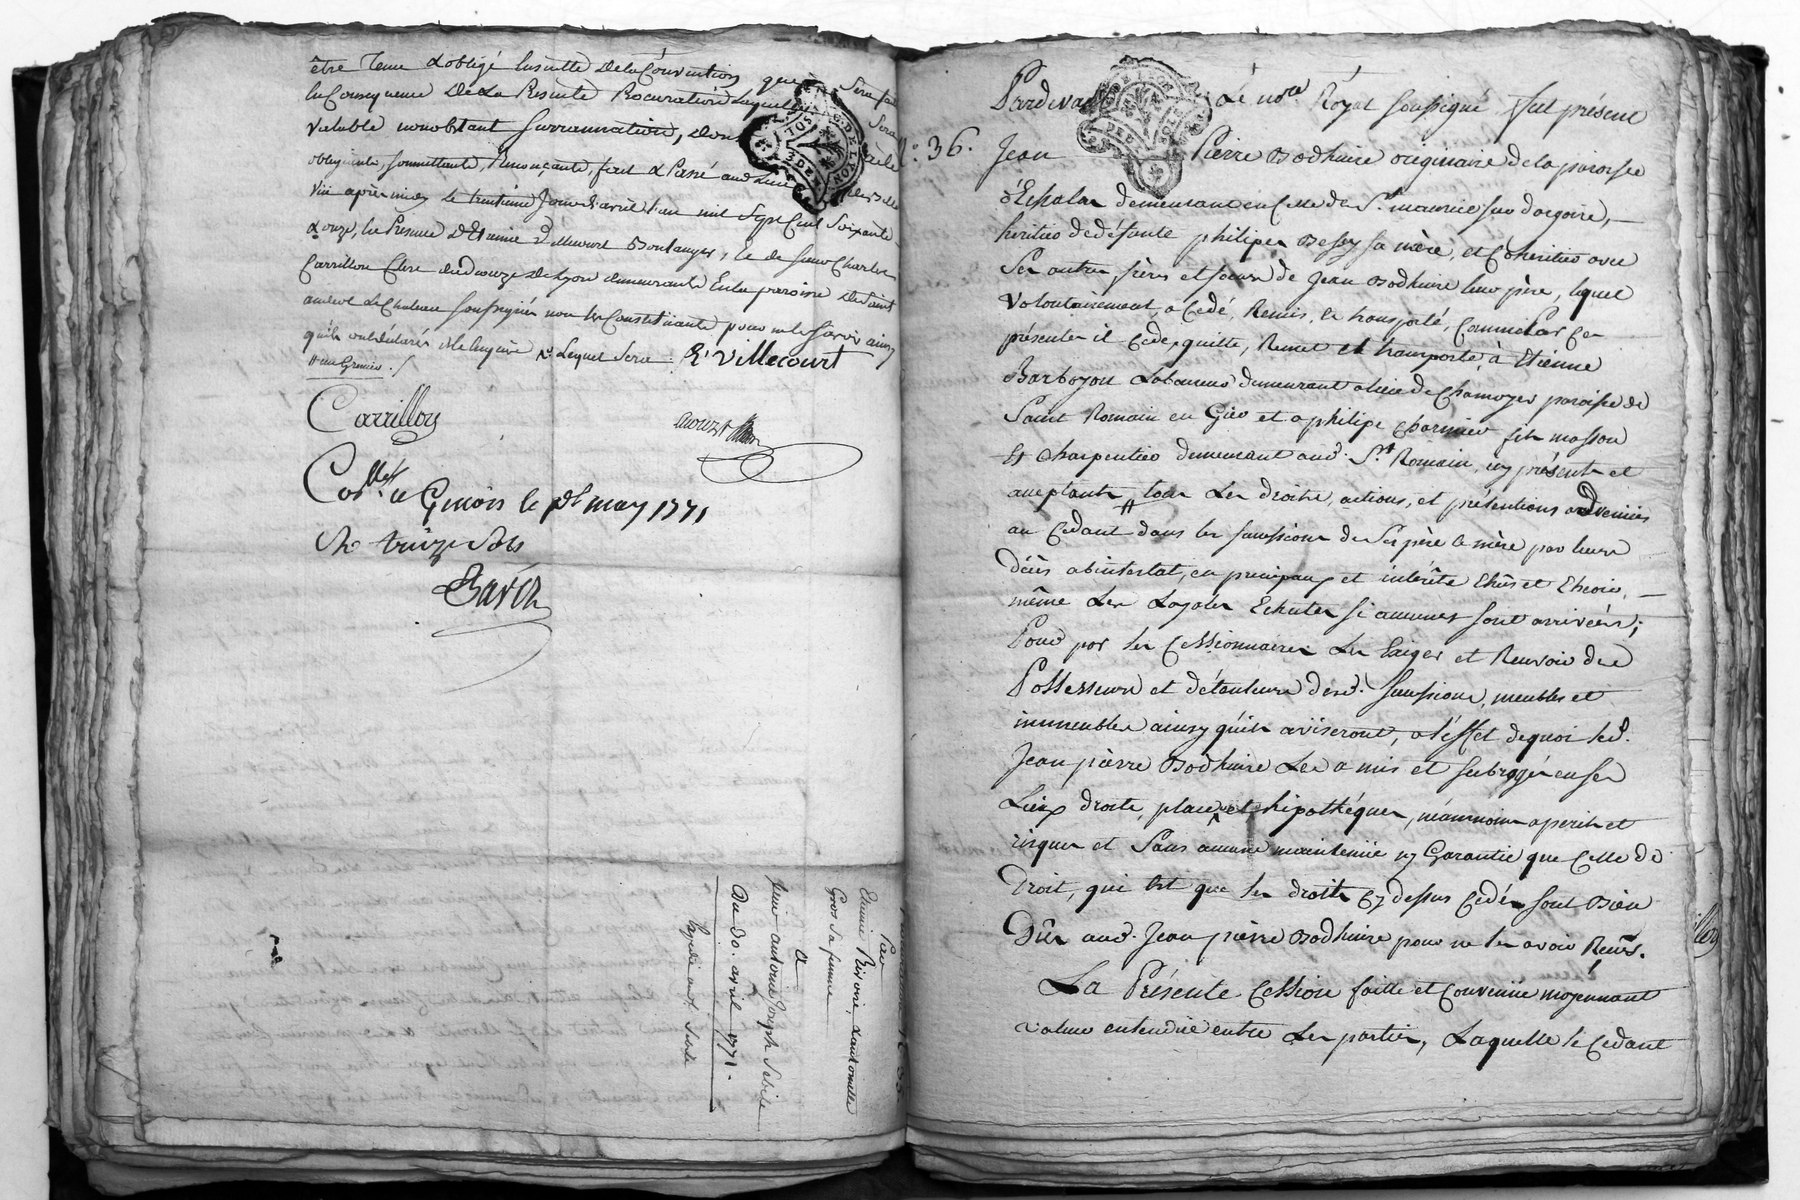 être tenu & obligé ensuitte de la Convention que Sera fait
En Consequence De La Présente Procuration Laquelle Sera
Valable nonobstant Surrannation, Dont
obligeante, Soumettante, Renonçante, fait & Passé aud Lieu
Vin après midy le trentieme Jour d'avril l'an mil Sept Cent Soixante
& onze, En Présence D'Etienne Villecourt Boulanger, & de Sieur Charles
Carrillon Clerc demeurants En la paroisse De Saint
andeol Le Chateau Soussignés non la Constituante pour ne le Savoir ainsy
qu'elle ont déclaré de ce enquise Lequel Sera : E. Villecourt
Carrillon
Con.lle a Givors le may 1771
Re treize Sols
Par
Etienne Rivoire, & antoinette
Gros Sa femme
a
Sieur antoine Joseph
Du 30. avril 1771.
N.º 36.
Pardevant Le no.re Royal Soussigné fut présent
Jean Pierre Bodhuire originaire de la paroisse
d'Echalas demeurant en Celle de S.t maurice sur dargoire,
heritier de défunte philipe Dessy sa mère, et Coheritier avec
Ses autres frères et soeurs de Jean Bodhuire leur père, lequel
Volontairement, a Cedé, Remis, et transporté, Comme Par Ces
présentes il Cede, quitte, Remet et transporte, à Etienne
Barboyon Laboureur demeurant au lieu de Chamoyer paroisse de
Saint Romain en Gier et a philipe Charmier fils masson
Et Charpentier demeurant aud. S.t Romain, icy présents et
acceptants tous Les droits, actions, et prétentions advenües
au Cedant dans les successions de Ses père & mère par leurs
Décès abintestat, en principaux et intérêts Echûs et Echoir,
même Les Loyales Echutes si aucunes sont arrivées;
Pour par les Cessionnaires Les Exiger et Recevoir des
Possesseurs et détenteurs desd. Successions, meubles et
immeubles ainsy qu'ils aviseront, a l'effet de quoi led.
Jean pierre Bodhuire Les a mis et subrogés en ses
Lieux droits, place et hipothéques, néanmoins a perils et
risques et Sans aucune maintenüe ny Garantie que Celle de
Droit, qui Est que les droits Cy dessus Cedés sont Bien
Dûs aud. Jean pierre Bodhuire pour ne les avoir Reçûs.
La Présente Cession faitte et Convenüe moyennant
valeur entendüe entre Les parties, Laquelle le Cedant